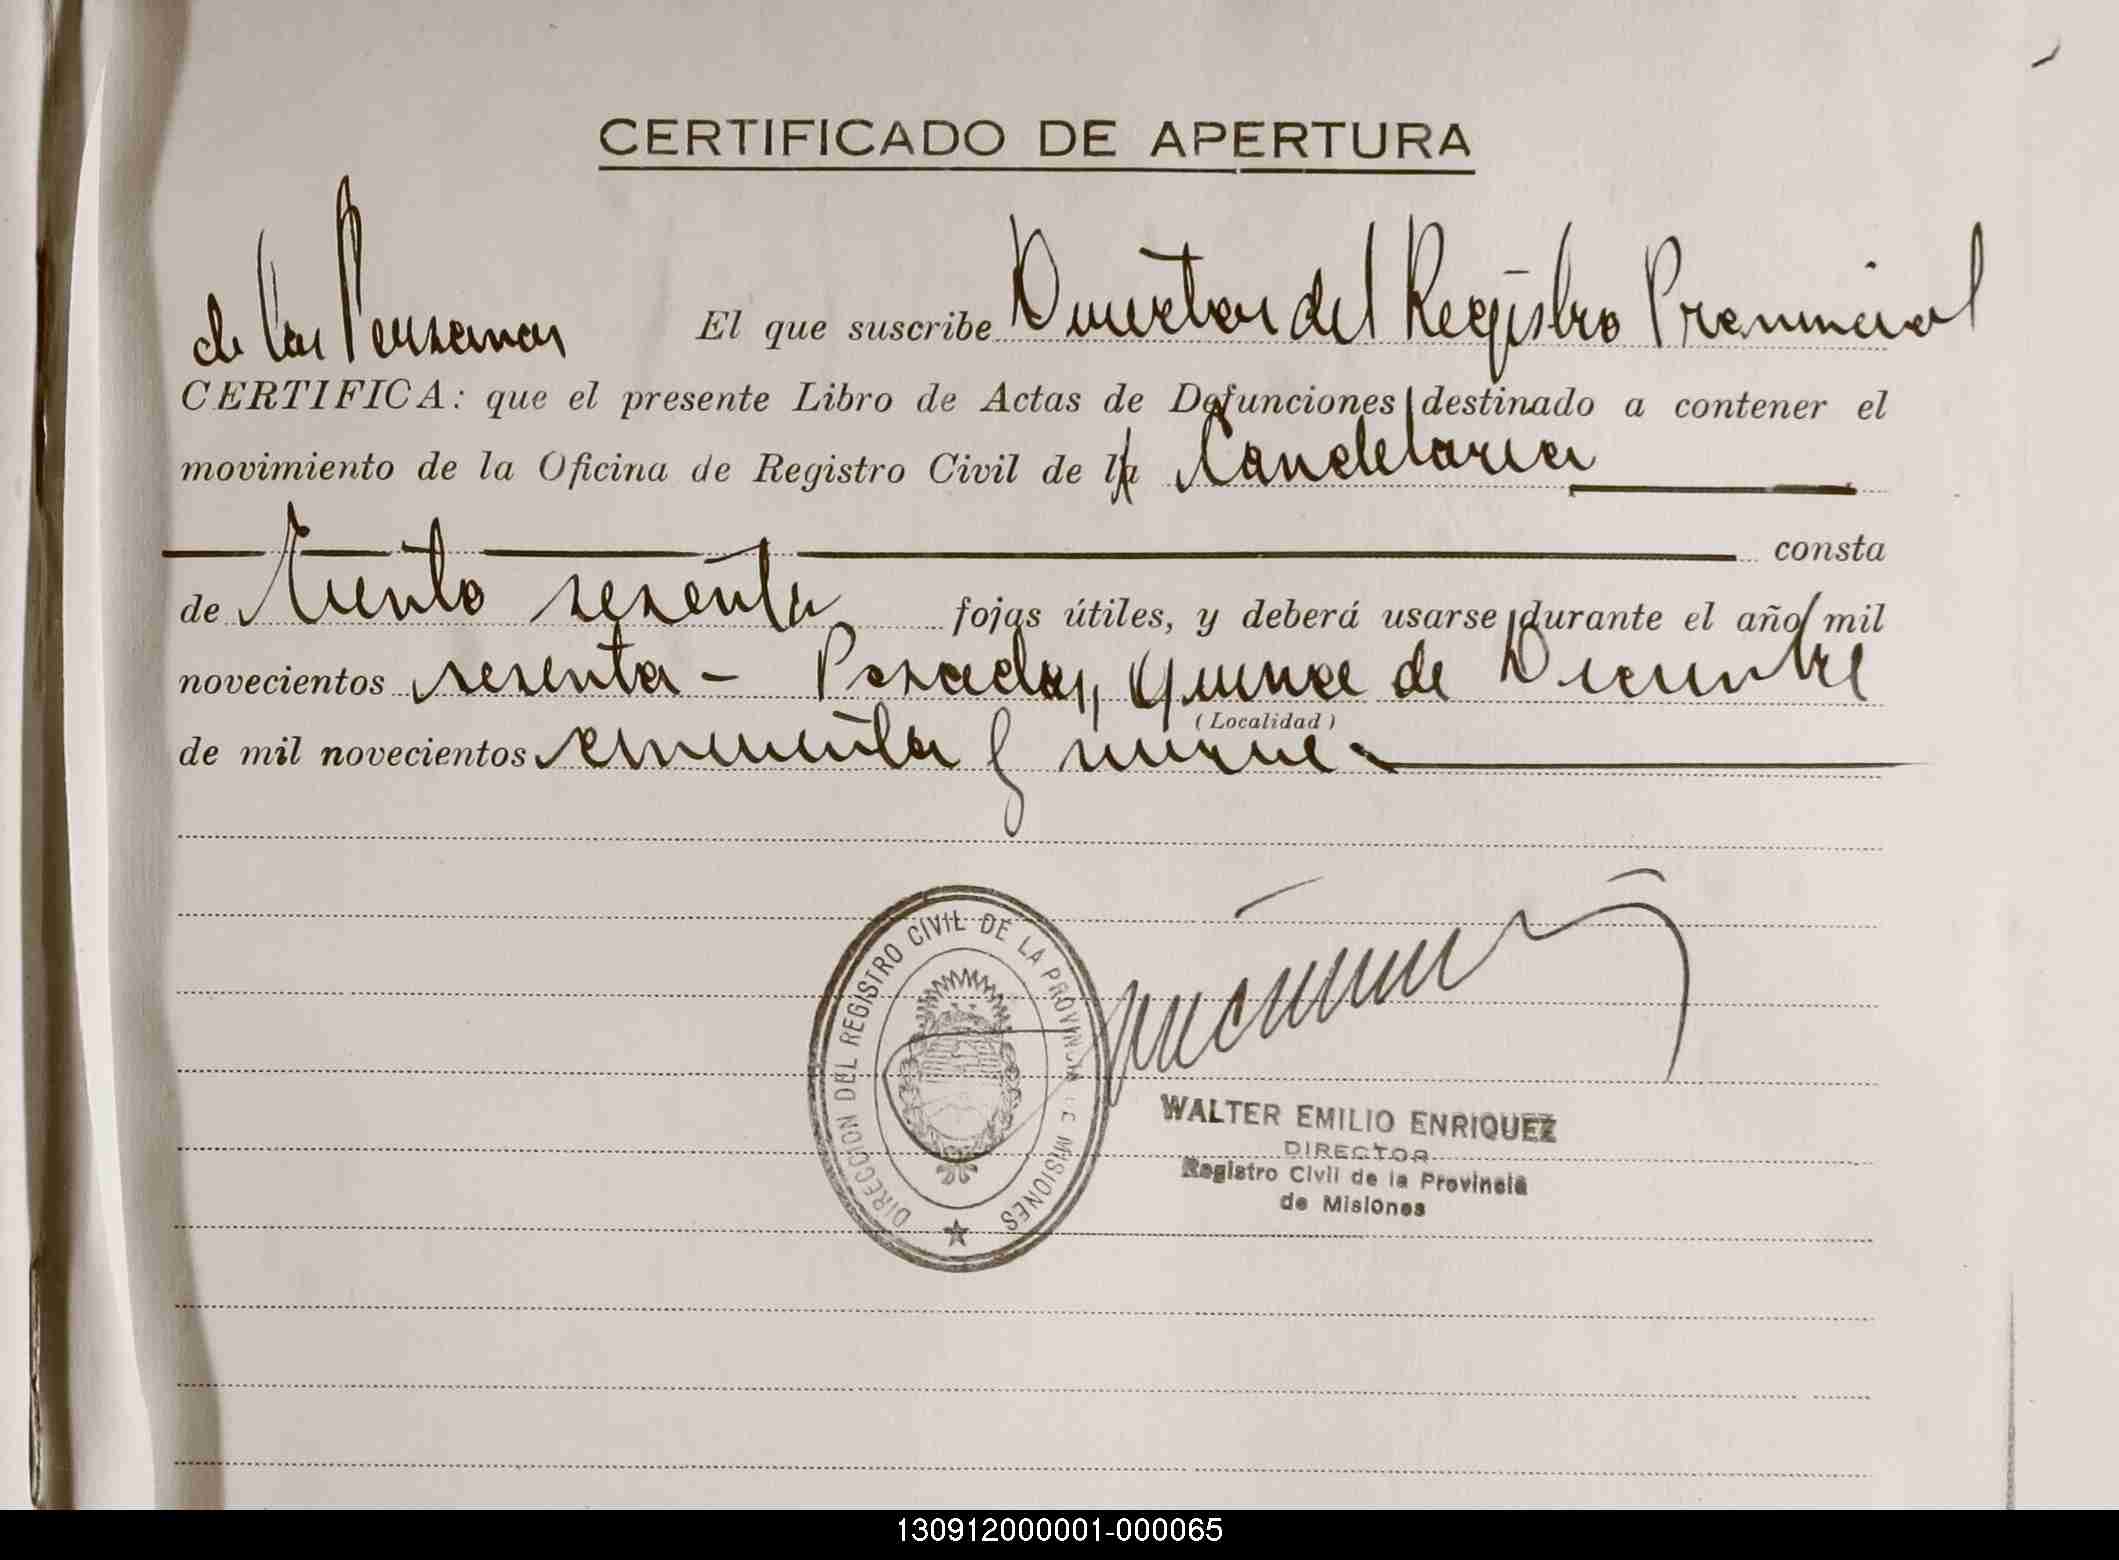 CERTIFICADO DE APERTURA
El que suscribe Director del Registro Provincial
de las Personas
CERTIFICA: que el presente Libro de Actas de Defunciones destinado a contener el
movimiento de la Oficina de Registro Civil de la Candelaria
consta
de Ciento sesenta fojas útiles, y deberá usarse durante el año mil
novecientos sesenta - Posadas, Quince de Diciembre
(Localidad)
de mil novecientos cincuenta y nueve.
DIRECCION DEL REGISTRO CIVIL DE LA PROVINCIA DE MISIONES
WALTER EMILIO ENRIQUEZ
DIRECTOR
Registro Civil de la Provincia
de Misiones
130912000001-000065